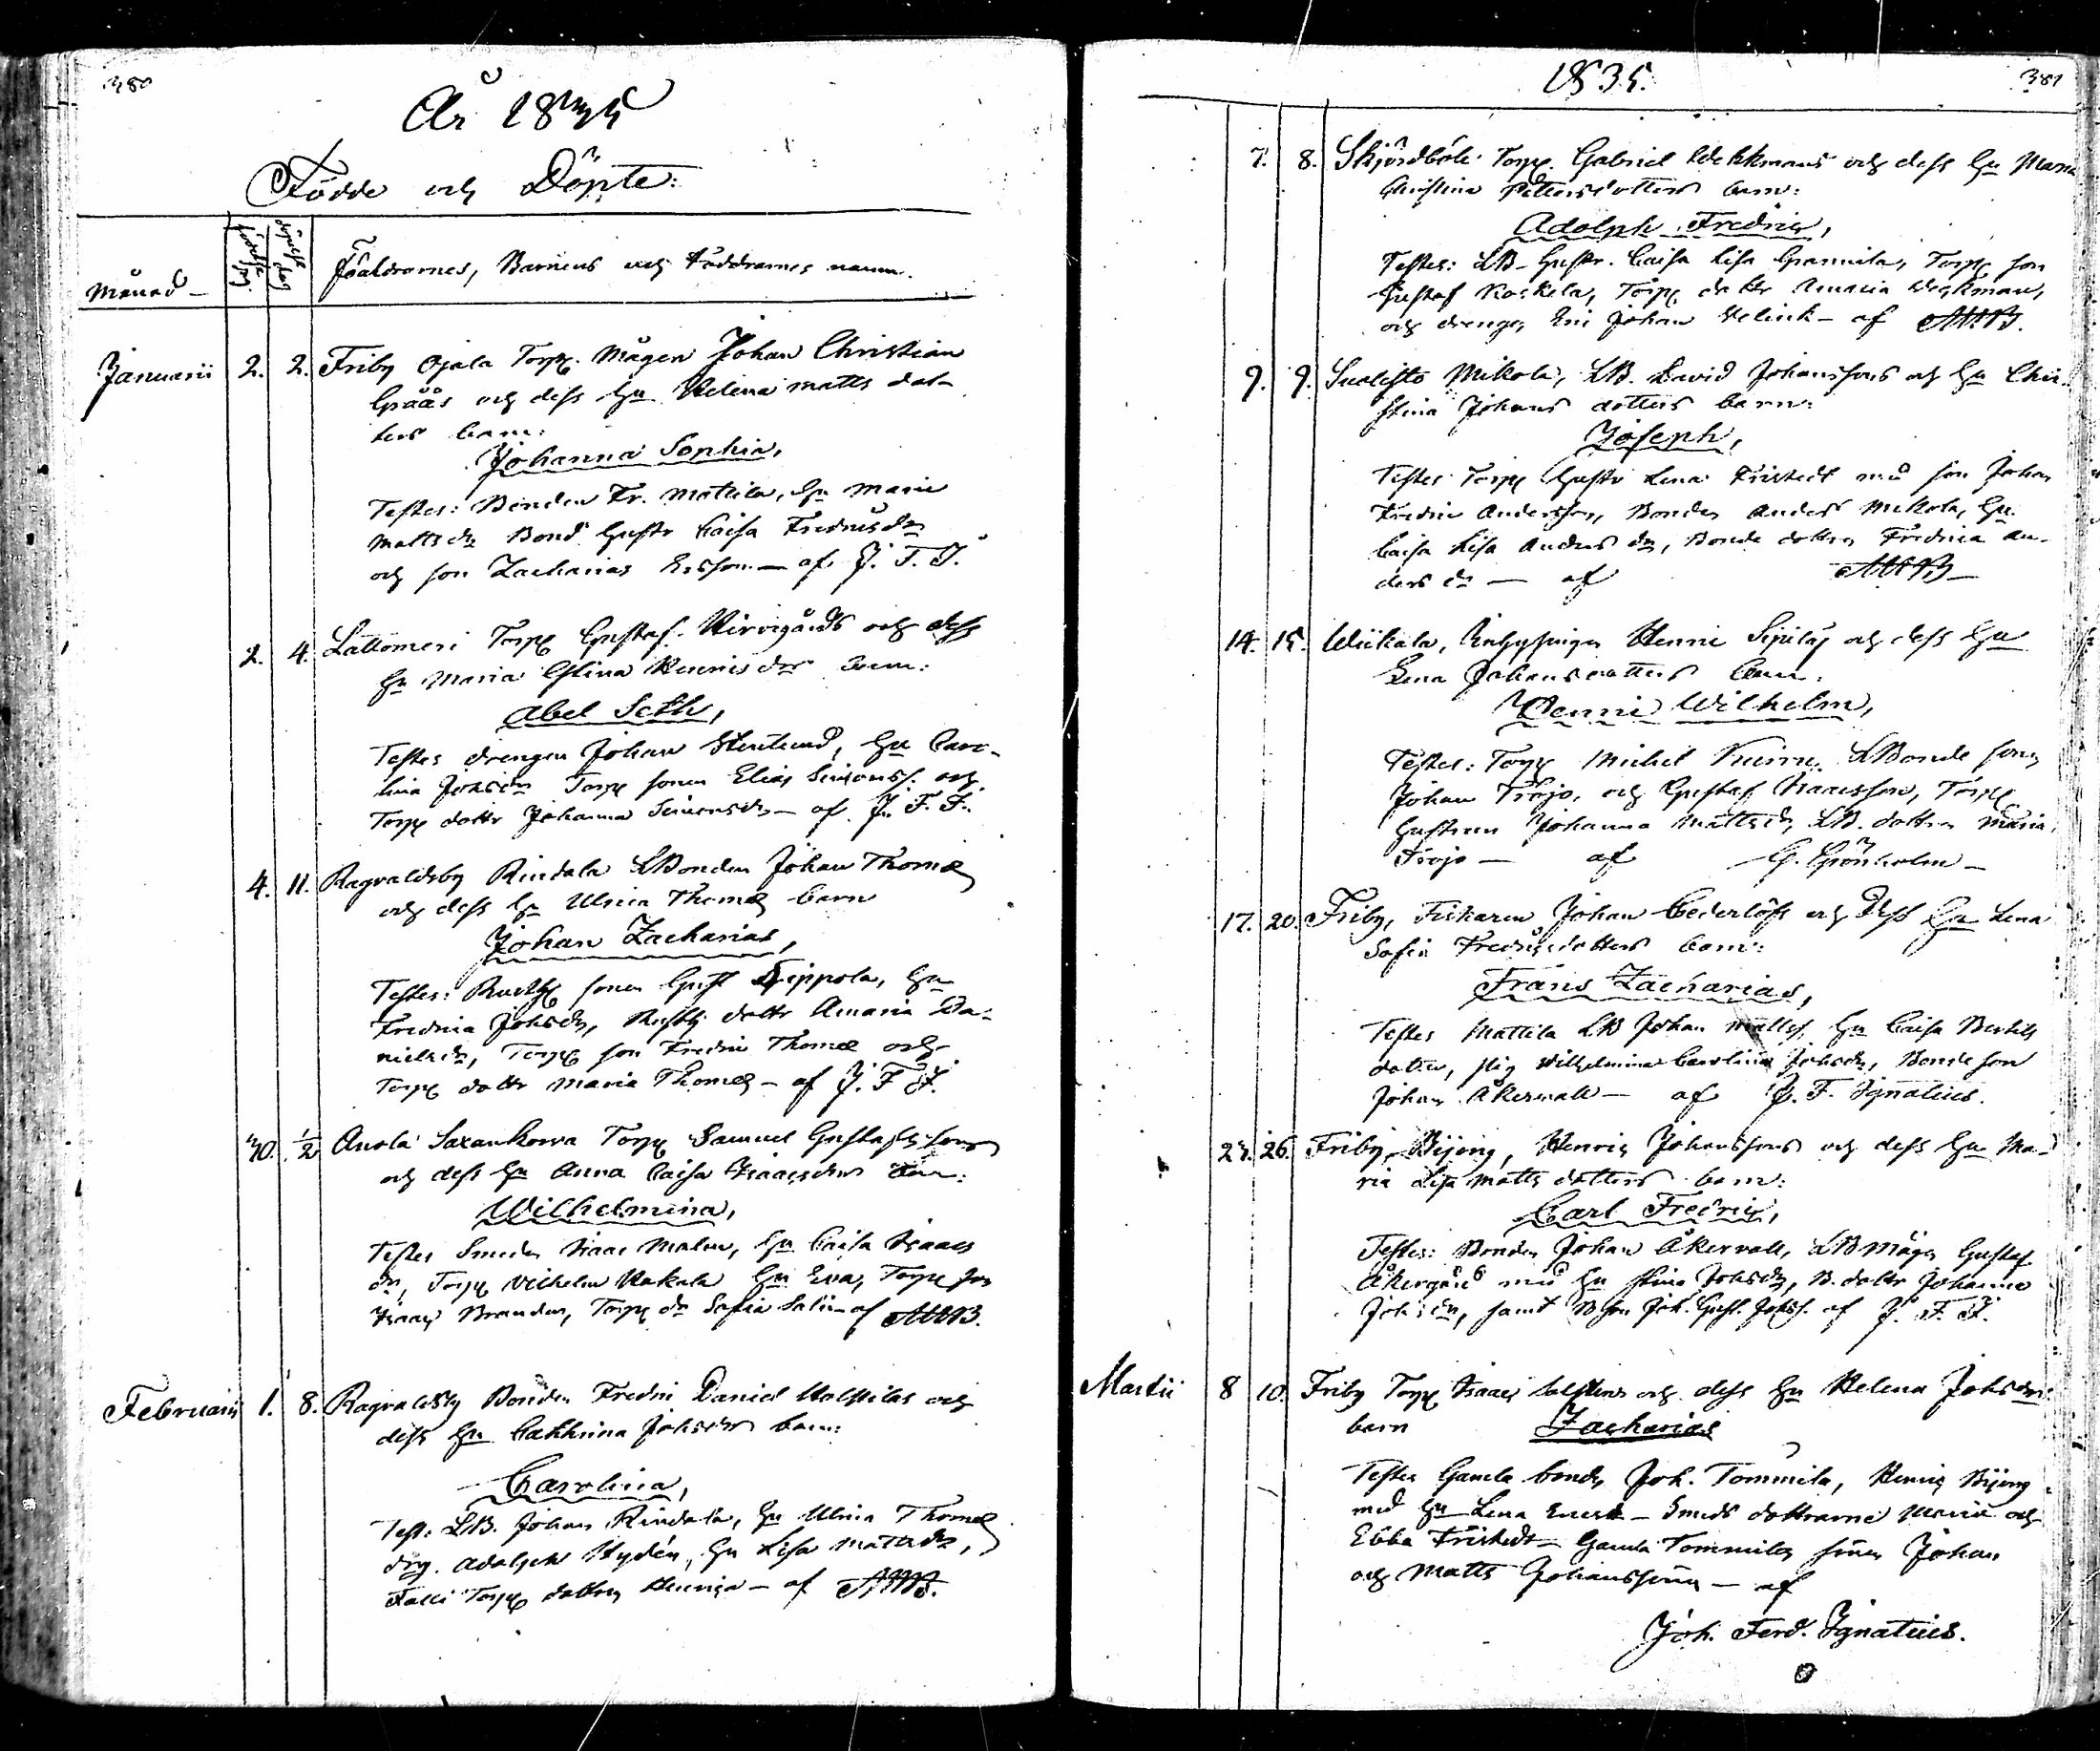 380
År 1835
Födde och Döpte:
Månad
födelse dag
döpelse dag
Föräldrarnes, Barnens och Faddrarnes namn.
Januarii 2. 2. Friby Ojala Torp. Mågen Johan Christian
Gråås och dess Hu Helena Matts dot-
ters barn:
Johanna Sophia,
Testes: Bonden Fr. Mattila, Hu Maria
Matts dr Bond Hustr Caisa Fredriks dr
och son Zacharias Ersson — af J. F. I.
2. 4. Lattomeri Torp Gustaf Hirvigårds och dess
Hu Maria Stina Henriks drs barn:
Abel Seth,
Testes drengen Johan Stenlund, Hu Caro-
lina Johs dr Torp sonen Elias Simonss. och
Torp dottr Johanna Simons dr — af J. F. I.
4. 11. Ragvaldsby Rindala LBonden Johan Thomæ
och dess Hu Ulrica Thomæ barn
Johan Zacharias,
Testes: Rusth sonen Gust Sippola, Hu
Fredrica Johs dr, Rusth dottr Amaria Da-
niels dr, Torp son Fredric Thomæ och
Torp dottr Maria Thomæ — af J. F. I.
30. 1/2 Anola Saxankorva Torp Samuel Gustafssons
och dess Hu Anna Caisa Isaacs drs barn:
Wilhelmina,
Testes Smeden Isaac Malm, Hu Caisa Isaacs
dr, Torp Vilhelm Hakala Hu Eva, Torp son
Isaac Brander, Torp dr Sofia Salin af
Februarii 1. 8. Ragvaldsby Bonden Fredric Daniel Holstilas och
dess Hu Cathrina Johs drs barn:
Carolina,
Test: LB. Johan Rindala, Hu Ulrica Thomæ
drg. Adolph Hydén, Hu Lisa Matts dr,
Torp dottren Henrica — af
1835.
381
7. 8. Skjördböle Torp. Gabriel Wekkmans och dess Hu Maria
Christina Pettersdotters barn:
Adolph Fredric,
Testes: LB Hustr. Caisa Lisa Grannila, Torp son
Gustaf Koskela, Torp dottr Amaria Weckman,
och drengen Eric Johan Helink — af
9. 9. Suolisto Mikola, LB. David Johanssons och Hu Chri-
stina Johans dotters barn:
Joseph,
Testes Torp Hustr Lena Fristedt med son Johan
Fredric Andersson, Bonden Anders Mikola, Hu
Caisa Lisa Anders dr, Bonde dottren Fredrica An-
ders dr — af
14. 15. Wiikala, Inhysingen Henric Sipilæ och dess Hu
Lena Johansdotters barn:
Henric Wilhelm,
Testes: Torp Michel Knirri, LBonde sonen
Johan Tröjo, och Gustaf Isaacsson, Torp
Hustrun Johanna Matts dr, LB. dottren Maria
Tröjo — af G. Grönholm —
17. 20. Friby, Fiskaren Johan Cederlöfs och dess Hu Lena
Sofia Fredriksdotters barn:
Frans Zacharias,
Testes Mattila LB Johan Mattss. Hu Caisa Bertils
dotter, pig Wilhelmina Carolina Johs dr, Bonde son
Johan Åkervall — af J. F. Ignatius.
25. 26. Friby, Bijong, Henric Johanssons och dess Hu Ma-
ria Lisa Matts dotters barn:
Carl Fredric,
Testes: Bonden Johan Åkervall, LB Mågen Gustaf
Åkergård med Hu Stina Johs dr, B. dottr Johanna
Johs dr, samt B son Joh. Gust. Johss. af J. F. I.
Martii 8 10. Friby Torp Isaac Salstens och dess Hu Helena Johs drs
barn Zacharias
Testes Gamla bonden Joh. Tommila, Henric Bijong
med Hu Lena — Smeds dottrarne Maria och
Ebba Fristedt — Gamla Tommilas söner Johan
och Matts Johanssöner — af
Joh. Ferd. Ignatius.